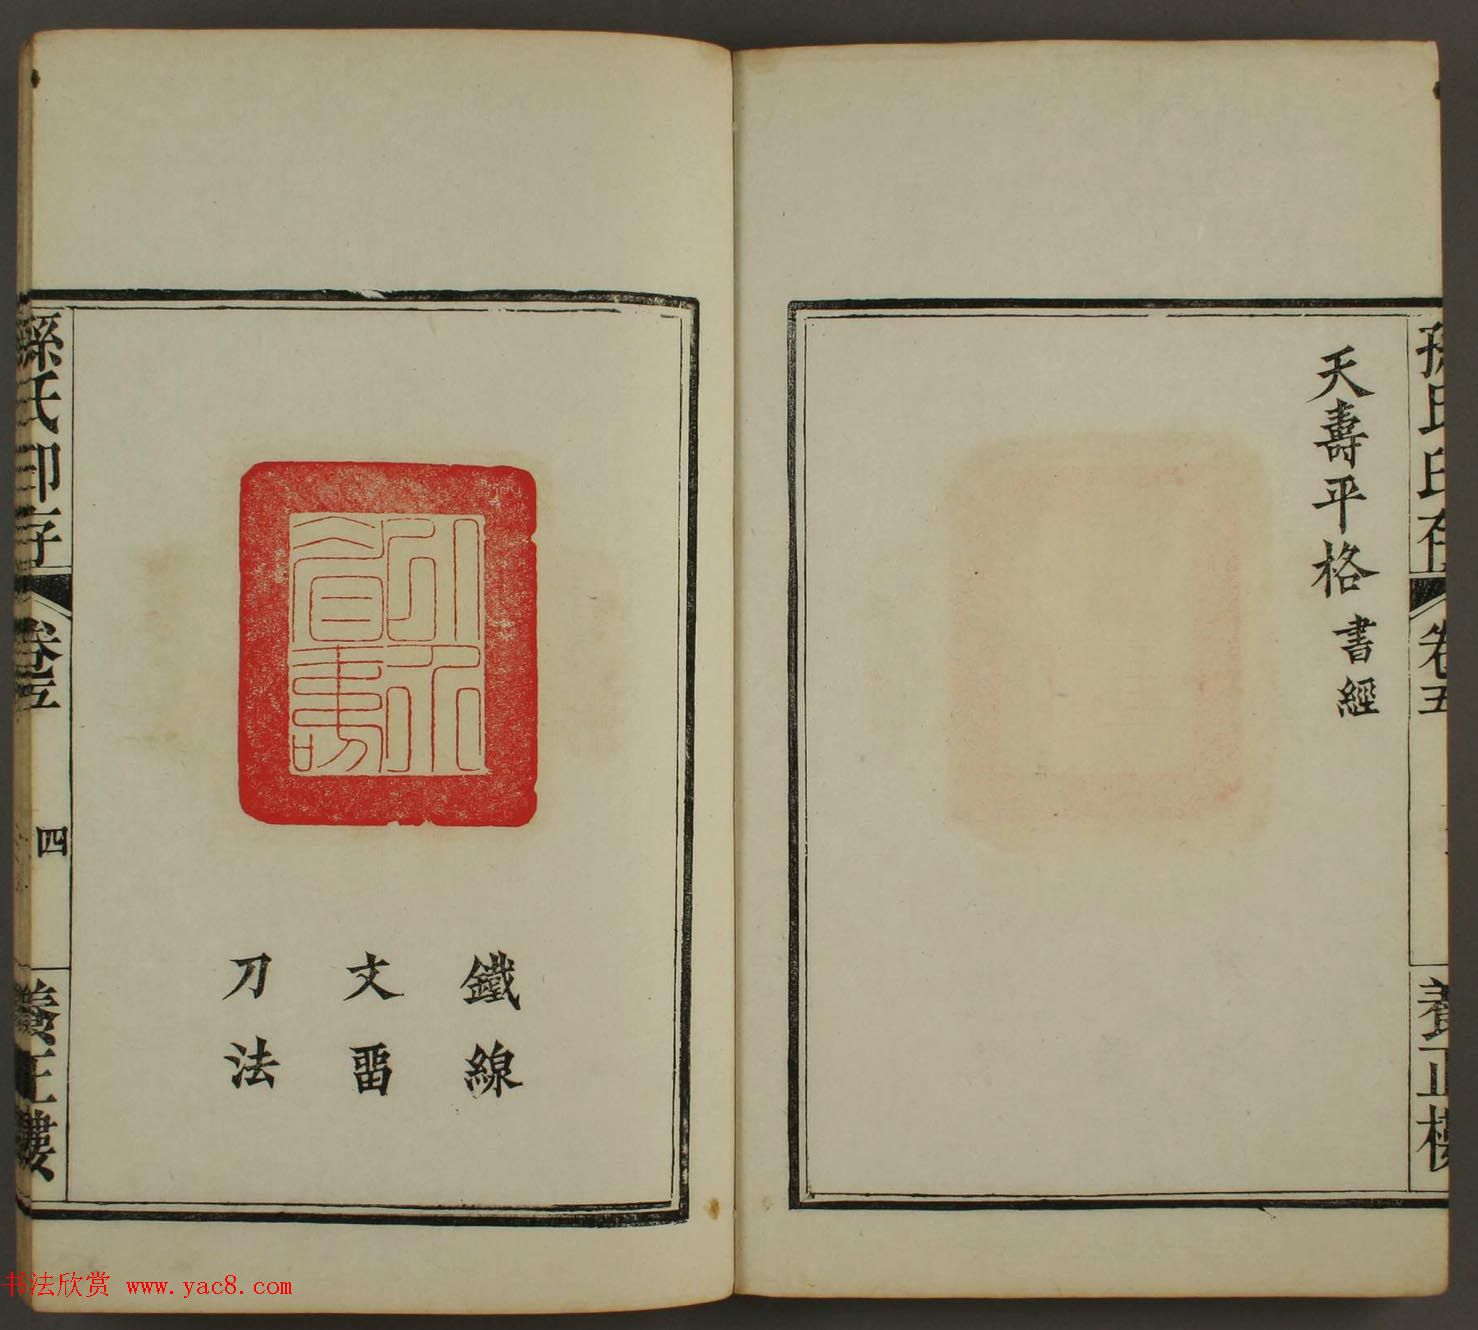 孫氏印存
卷五
養正樓
天壽平格 書經
鐵線
文留
刀法
孫氏印存
卷五
四
養正樓
书法欣赏 www.yac8.com